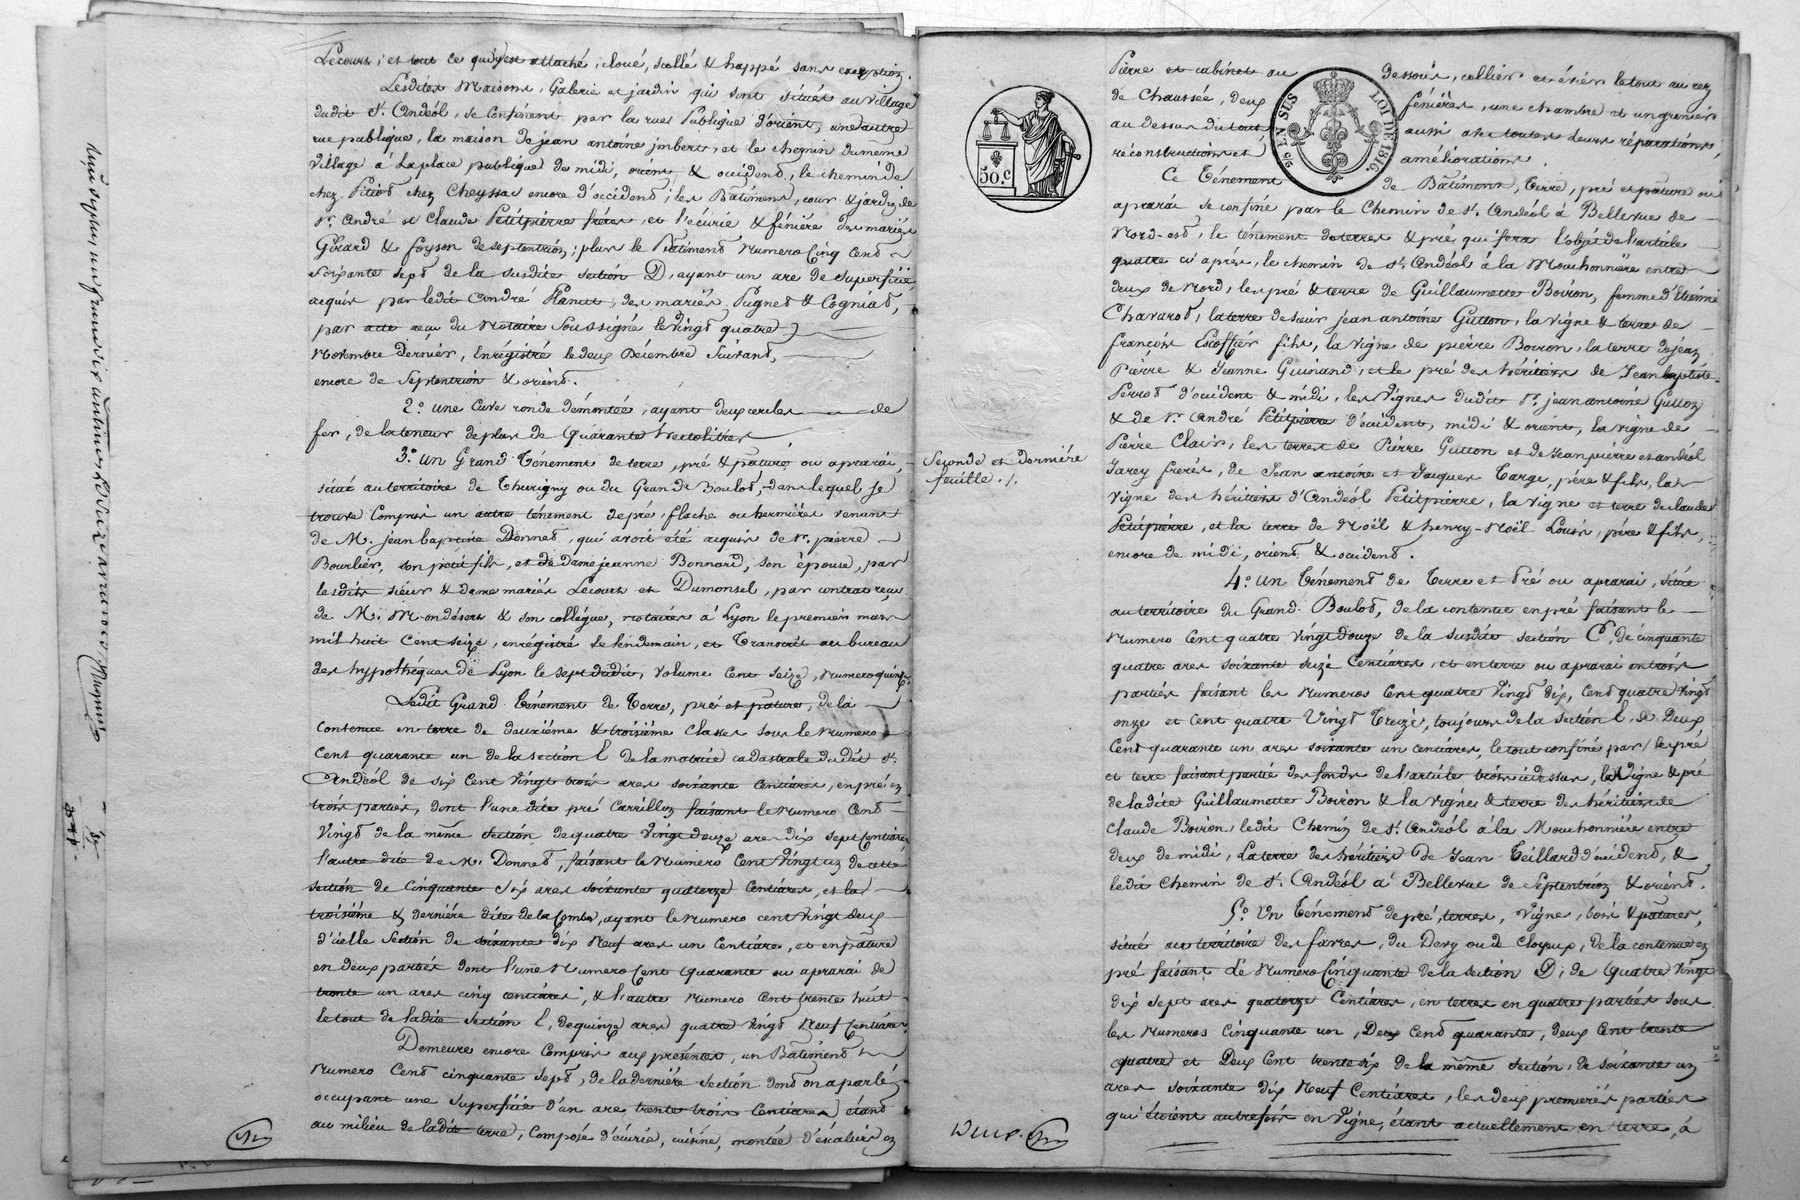 Lecourt; et tout ce qui y est attaché, cloué, scellé & happé sans exception.
Lesdites Maisons, Galerie et jardin qui sont situés au village
dudit St. Andéol, se confinent par la rue Publique d'orient, une autre
rue publique, la maison de jean antoine jmbert, et le chemin du même
village à la place publique de midi, orient & occident, le chemin de
chez Pitiot chez Cheyssac encore d'occident; les Bâtiments, cour & jardin de
Sr. André et Claude Petitpierre frères et l'écurie & fénière des mariés
Girard & foyson de septentrion; plus le Bâtiment Numero Cinq Cent
Soixante sept de la susdite section D, ayant un are de superficie
acquis par ledit André Planut, des mariés Pugnet & Cogniat,
par acte reçu du Notaire Soussigné le Vingt quatre
Novembre dernier, Enrégistré le deux Décembre Suivant,
encore de Septentrion & orient.
2.° une Cuve ronde démontée ayant deux cercles de
fer, de la teneur de plus de Quarante hectolitres.
3.° un Grand Ténement de terre, pré & pature ou aprarai,
situé au territoire de Thurigny ou du Grand Boulot, dans lequel se
trouve Compris un autre ténement de pré, flache ou hermières venant
de M. jean baptiste Donnet, qui avoit été acquis de Sr. pierre
Bourlier, son petit fils, et de dame jeanne Bonnard, son épouse, par
lesdits sieur & dame mariés Lecourt et Dumonsel, par contrat reçu
de Me. Mondésert & son collégue, notaires à Lyon le premier mars
mil huit Cent seize, enrégistré le lendemain, et Transcrit au bureau
des hypothèques de Lyon le sept dudit, volume Cent Seize, Numero quinze.
Ledit Grand Ténement de Terre, pré et pature, de la
Contenue en terre de deuxième & troisième classes sous le Numero
Cent quarante un de la section C de la matrice cadastrale dudit St.
Andéol de six Cent Vingt trois ares soixante Centiares, en pré en
trois parties, dont l'une dite pré Carrillon faisant le Numero Cent
Vingt de la même section de quatre Vingt douze ares dix sept Centiares
l'autre dite de M. Donnet, faisant le Numero Cent Vingt un de cette
section de Cinquante Six ares soixante quatorze Centiares, et la
troisième & dernière dite de la Combe, ayant le Numero cent vingt deux
d'icelle Section de soixante dix Neuf ares un Centiare, et en pature
en deux parties dont l'une Numero Cent Quarante ou aprarai de
trente un ares cinq centiares, & l'autre Numero Cent trente huit
le tout de ladite section C, de quinze ares quatre Vingt Neuf Centiares.
Demeure encore Compris aux présentes, un Bâtiment
Numero Cent cinquante sept, de la dernière section dont on a parlé,
occupant une superficie d'un are trente trois Centiares, étant
au milieu de ladite terre, Composé d'écurie, cuisine, montée d'escaliers en
Seconde et dernière
feuille ./.
50.c
25 EN SUS LOI DE 1816.
Pierre et cabinet au dessous, cellier et évier le tout au rez
de Chaussée, deux fénières, une chambre et un grenier
au dessus du tout, aussi avec toutes leurs réparations,
réconstructions et améliorations.
Ce Ténement de Bâtiment, Terre, pré et pature ou
aprarai se confine par le Chemin de St. Andéol à Bellevue de
Nord-est, le ténement de terres & pré qui fera l'objet de l'article
quatre ci après, le chemin de St. Andéol à la Mouhonnière entre
deux de Nord, les pré & terre de Guillaumette Boiron, femme d'Etienne
Chavarot, la terre de Sieur jean antoine Gutton, la vigne & terre de
françois Escoffier fils, la vigne de pierre Boiron, la terre de jean
Pierre & Jeanne Guinand, et le pré des héritiers de Jean baptiste
Perrot d'occident & midi, les Vignes dudit Sr. jean antoine Gutton
& de Sr. André Petitpierre d'occident, midi & orient, la vigne de
Pierre Clair, les terres de Pierre Gutton et de Jean pierre et andéol
Jarey frères, de Jean antoine et Jacques Targe, père & fils, la
Vigne des héritiers d'Andéol Petitpierre, la vigne et terre de claude
Petitpierre, et la terre de Noël & henry-Noël Louis, père & fils,
encore de midi, orient & occident.
4.° un Ténement de Terre et Pré ou aprarai, situé
au territoire du Grand Boulot, de la contenue en pré faisant le
Numero Cent quatre Vingt Douze de la susdite section C, de cinquante
quatre ares soixante seize Centiares, et en terre ou aprarai en trois
parties faisant les Numeros Cent quatre Vingt dix, Cent quatre Vingt
onze et cent quatre Vingt Treize, toujours de la section C, de Deux
Cent quarante un ares soixante un centiares, le tout confiné par les pré
et terre faisant partie des fonds de l'article trois cidessus, la vigne & pré
de ladite Guillaumette Boiron & la vigne & terre des héritiers de
Claude Boiron, ledit Chemin de St. Andéol à la Mouhonnière entre
deux de midi, La terre des héritiers de Jean Teillard d'occident, &
ledit Chemin de St. Andéol à Bellevue de Septentrion & orient.
5.° Un Ténement de pré, terres, Vigne, bois & patures,
situé au territoire des favres, du Dery ou de Cloyeux, de la contenue en
pré faisant le Numero Cinquante de la section D, de Quatre Vingt
dix sept ares quatorze Centiares, en terres en quatre parties sous
les Numeros Cinquante un, Deux Cent quarante, deux Cent trente
quatre et Deux Cent trente six de la même Section, de soixante un
ares soixante dix Neuf Centiares, les deux premières parties
qui étoient autrefois en Vigne, étant actuellement en terre, à